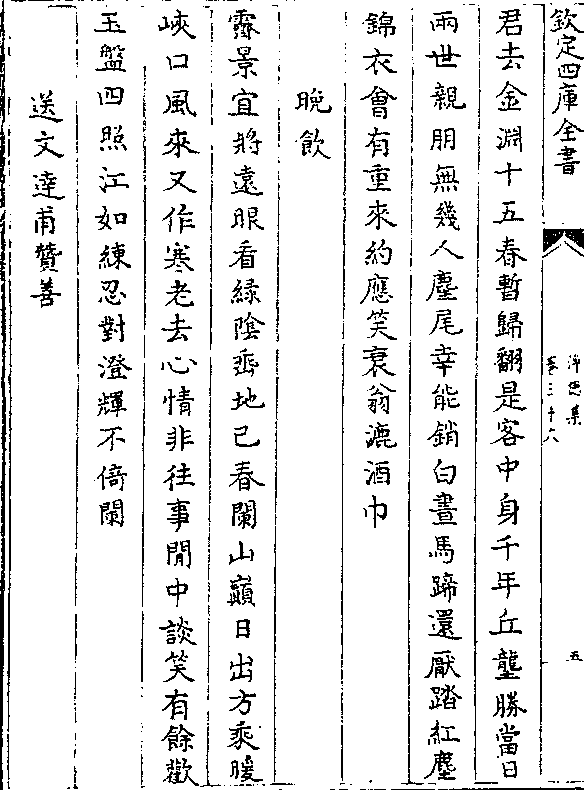 欽定四庫全書
淨德集
卷三十六
五
君去金淵十五春暫歸翻是客中身千年丘壟勝當日
兩世親朋無幾人麈尾幸能銷白晝馬蹄還厭踏紅塵
錦衣會有重來約應笑衰翁漉酒巾
晚飲
霽景宜將遠眼看緑陰垂地已春闌山巔日出方乘暖
峽口風來又作寒老去心情非往事閒中談笑有餘歡
玉盤四照江如練忍對澄輝不倚闌
送文達甫贊善